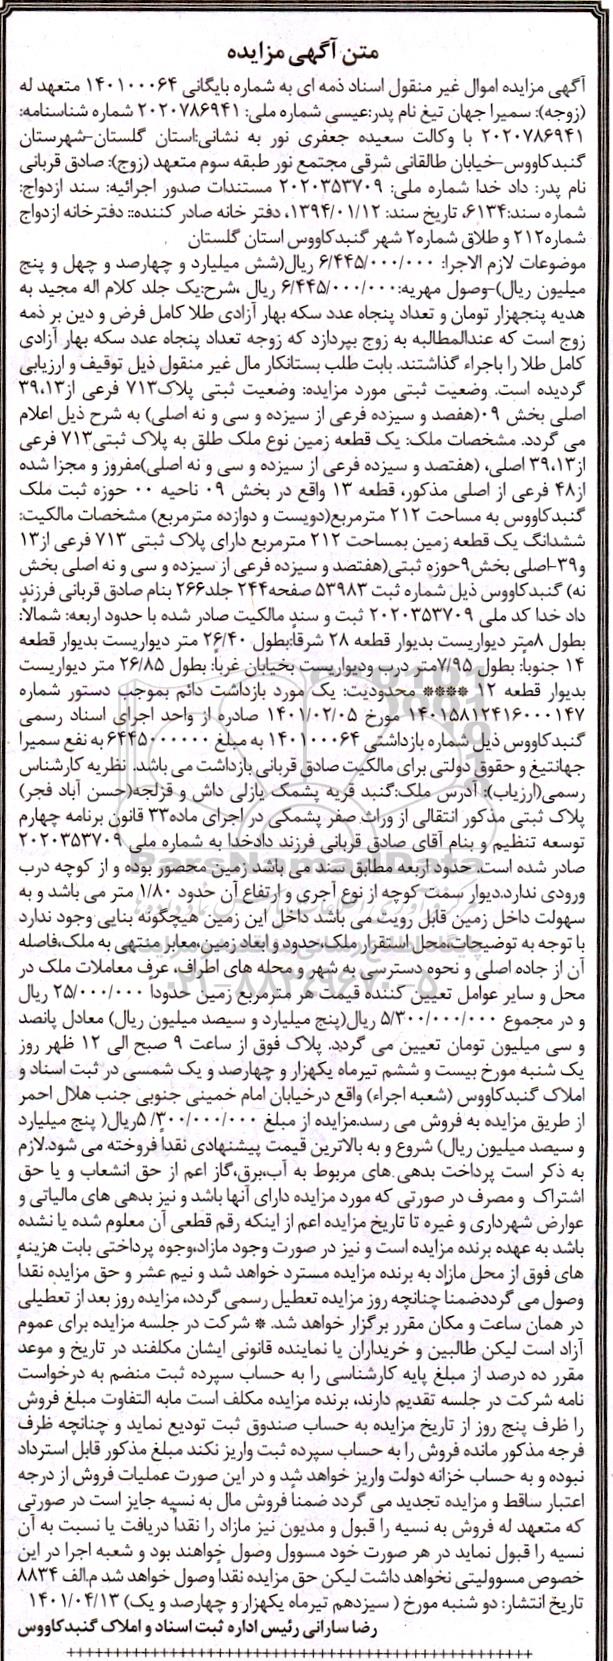 متن آگهی مزایده
آگهی مزایده اموال غیر منقول اسناد ذمه ای به شماره بایگانی ۱۴۰۱۰۰۰۶۴ متعهد له
(زوجه): سمیرا جهان تیغ نام پدر:عیسی شماره ملی: ۲۰۲۰۷۸۶۹۴۱ شماره شناسنامه:
۲۰۲۰۷۸۶۹۴۱ با وکالت سعیده جعفری نور به نشانی:استان گلستان-شهرستان
گنبدکاووس-خیابان طالقانی شرقی مجتمع نور طبقه سوم متعهد (زوج): صادق قربانی
نام پدر: داد خدا شماره ملی: ۲۰۲۰۳۵۳۷۰۹ مستندات صدور اجرائیه: سند ازدواج:
شماره سند:۶۱۳۴، تاریخ سند: ۱۳۹۴/۰۱/۱۲، دفتر خانه صادر کننده:: دفترخانه ازدواج
شماره۲۱۲ و طلاق شماره۲ شهر گنبدکاووس استان گلستان
موضوعات لازم الاجرا: ۶/۴۴۵/۰۰۰/۰۰۰ ریال(شش میلیارد و چهارصد و چهل و پنج
میلیون ریال)-وصول مهریه:۶/۴۴۵/۰۰۰/۰۰۰ ریال ،شرح:یک جلد کلام اله مجید به
هدیه پنجهزار تومان و تعداد پنجاه عدد سکه بهار آزادی طلا کامل فرض و دین بر ذمه
زوج است که عندالمطالبه به زوج بپردازد که زوجه تعداد پنجاه عدد سکه بهار آزادی
کامل طلا را باجراء گذاشتند. بابت طلب بستانکار مال غیر منقول ذیل توقیف و ارزیابی
گردیده است. وضعیت ثبتی مورد مزایده: وضعیت ثبتی پلاک۷۱۳ فرعی از۳۹،۱۳
اصلی بخش ۰۹(هفصد و سیزده فرعی از سیزده و سی و نه اصلی) به شرح ذیل اعلام
می گردد. مشخصات ملک: یک قطعه زمین نوع ملک طلق به پلاک ثبتی۷۱۳ فرعی
از۳۹،۱۳ اصلی، (هفتصد و سیزده فرعی از سیزده و سی و نه اصلی)مفروز و مجزا شده
از۴۸ فرعی از اصلی مذکور، قطعه ۱۳ واقع در بخش ۰۹ ناحیه ۰۰ حوزه ثبت ملک
گنبدکاووس به مساحت ۲۱۲ مترمربع(دویست و دوازده مترمربع) مشخصات مالکیت:
ششدانگ یک قطعه زمین بمساحت ۲۱۲ مترمربع دارای پلاک ثبتی ۷۱۳ فرعی از۱۳
و۳۹-اصلی بخش۹حوزه ثبتی(هفتصد و سیزده فرعی از سیزده و سی و نه اصلی بخش
نه) گنبدکاووس ذیل شماره ثبت ۵۳۹۸۳ صفحه۲۴۴ جلد۲۶۶ بنام صادق قربانی فرزند
داد خدا کد ملی ۲۰۲۰۳۵۳۷۰۹ ثبت و سند مالکیت صادر شده با حدود اربعه: شمالا:
بطول ۸متر دیواریست بدیوار قطعه ۲۸ شرقا:بطول ۲۶/۴۰ متر دیواریست بدیوار قطعه
۱۴ جنوباً: بطول ۷/۹۵متر درب ودیواریست بخیابان غرباً: بطول ۲۶/۸۵ متر دیواریست
بدیوار قطعه ۱۲ **** محدودیت: یک مورد بازداشت دائم بموجب دستور شماره
۱۴۰۱۵۸۱۲۴۱۶۰۰۰۱۴۷ مورخ ۱۴۰۱/۰۲/۰۵ صادره از واحد اجرای اسناد رسمی
گنبدکاووس ذیل شماره بازداشتی ۱۴۰۱۰۰۰۶۴ به مبلغ ۶۴۴۵۰۰۰۰۰۰ به نفع سمیرا
جهانتیغ و حقوق دولتی برای مالکیت صادق قربانی بازداشت می باشد. نظریه کارشناس
رسمی(ارزیاب): آدرس ملک:گنبد قریه پشمک یازلی داش و قزلجه(حسن آباد فجر)
پلاک ثبتی مذکور انتقالی از وراث صفر پشمکی در اجرای ماده۳۳ قانون برنامه چهارم
توسعه تنظیم و بنام آقای صادق قربانی فرزند دادخدا به شماره ملی ۲۰۲۰۳۵۳۷۰۹
صادر شده است. حدود اربعه مطابق سند می باشد زمین محصور بوده و از کوچه درب
ورودی ندارد.دیوار سمت کوچه از نوع آجری و ارتفاع آن حدود ۱/۸۰ متر می باشد و به
سهولت داخل زمین قابل رویت می باشد داخل این زمین هیچگونه بنایی وجود ندارد
با توجه به توضیحات،محل استقرار ملک،حدود و ابعاد زمین،معابر منتهی به ملک،فاصله
آن از جاده اصلی و نحوه دسترسی به شهر و محله های اطراف، عرف معاملات ملک در
محل و سایر عوامل تعیین کننده قیمت هر مترمربع زمین حدوداً ۲۵/۰۰۰/۰۰۰ ریال
و در مجموع ۵/۳۰۰/۰۰۰/۰۰۰ ریال(پنج میلیارد و سیصد میلیون ریال) معادل پانصد
و سی میلیون تومان تعیین می گردد. پلاک فوق از ساعت ۹ صبح الی ۱۲ ظهر روز
یک شنبه مورخ بیست و ششم تیرماه یکهزار و چهارصد و یک شمسی در ثبت اسناد و
املاک گنبدکاووس (شعبه اجراء) واقع درخیابان امام خمینی جنوبی جنب هلال احمر
از طریق مزایده به فروش می رسد.مزایده از مبلغ ۵/۳۰۰/۰۰۰/۰۰۰ریال( پنج میلیارد
و سیصد میلیون ریال) شروع و به بالاترین قیمت پیشنهادی نقداً فروخته می شود.لازم
به ذکر است پرداخت بدهی های مربوط به آب،برق،گاز اعم از حق انشعاب و یا حق
اشتراک و مصرف در صورتی که مورد مزایده دارای آنها باشد و نیز بدهی های مالیاتی و
عوارض شهرداری و غیره تا تاریخ مزایده اعم از اینکه رقم قطعی آن معلوم شده یا نشده
باشد به عهده برنده مزایده است و نیز در صورت وجود مازاد،وجوه پرداختی بابت هزینه
های فوق از محل مازاد به برنده مزایده مسترد خواهد شد و نیم عشر و حق مزایده نقداً
وصول می گرددضمنا چنانچه روز مزایده تعطیل رسمی گردد، مزایده روز بعد از تعطیلی
در همان ساعت و مکان مقرر برگزار خواهد شد. * شرکت در جلسه مزایده برای عموم
آزاد است لیکن طالبین و خریداران یا نماینده قانونی ایشان مکلفند در تاریخ و موعد
مقرر ده درصد از مبلغ پایه کارشناسی را به حساب سپرده ثبت منضم به درخواست
نامه شرکت در جلسه تقدیم دارند، برنده مزایده مکلف است مابه التفاوت مبلغ فروش
را ظرف پنج روز از تاریخ مزایده به حساب صندوق ثبت تودیع نماید و چنانچه ظرف
فرجه مذکور مانده فروش را به حساب سپرده ثبت واریز نکند مبلغ مذکور قابل استرداد
نبوده و به حساب خزانه دولت واریز خواهد شد و در این صورت عملیات فروش از درجه
اعتبار ساقط و مزایده تجدید می گردد ضمناً فروش مال به نسیه جایز است در صورتی
که متعهد له فروش به نسیه را قبول و مدیون نیز مازاد را نقداً دریافت یا نسبت به آن
نسیه را قبول نماید در هر صورت خود مسوول وصول خواهند بود و شعبه اجرا در این
خصوص مسوولیتی نخواهد داشت لیکن حق مزایده نقداً وصول خواهد شد م.الف ۸۸۳۴
تاریخ انتشار: دو شنبه مورخ ( سیزدهم تیرماه یکهزار و چهارصد و یک) ۱۴۰۱/۰۴/۱۳
رضا سارانی رئیس اداره ثبت اسناد و املاک گنبدکاووس
ParsNamadData
۰۲۱-۸۸۳۴۹۶۷۰-۵